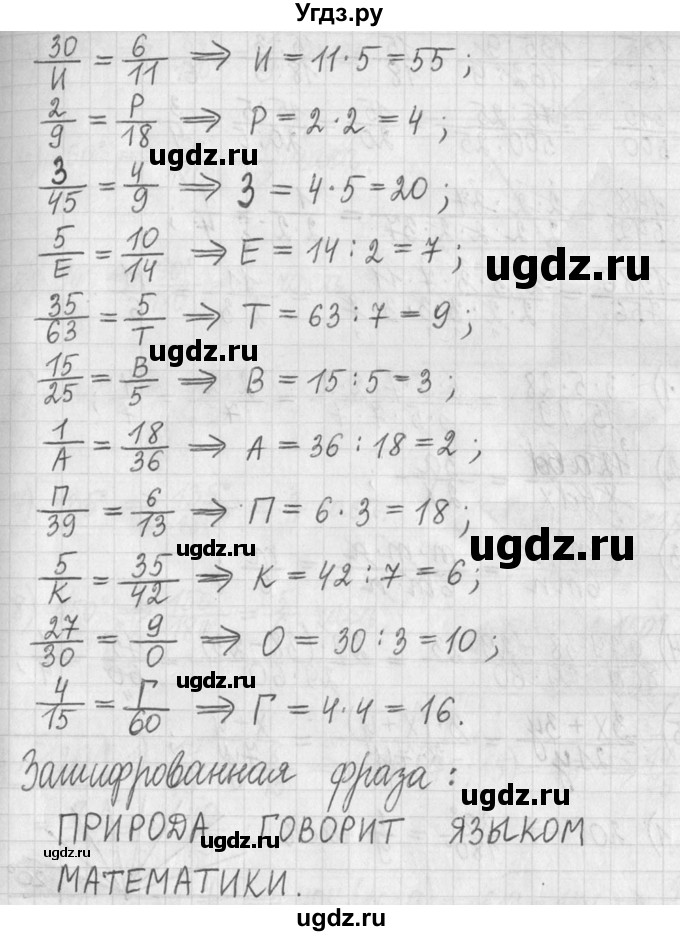 Угдз.ру
30/И = 6/11 ⇒ И = 11·5 = 55;
2/9 = Р/18 ⇒ Р = 2·2 = 4;
ugdz.ru
З/45 = 4/9 ⇒ З = 4·5 = 20;
5/Е = 10/14 ⇒ Е = 14:2 = 7;
ugdz.ru
35/63 = 5/Т ⇒ Т = 63:7 = 9;
ugdz.ru
15/25 = В/5 ⇒ В = 15:5 = 3;
1/А = 18/36 ⇒ А = 36:18 = 2;
П/39 = 6/13 ⇒ П = 6·3 = 18;
ugdz.ru
ugdz.ru
5/К = 35/42 ⇒ К = 42:7 = 6;
27/30 = 9/О ⇒ О = 30:3 = 10;
ugdz.ru
4/15 = Г/60 ⇒ Г = 4·4 = 16.
Зашифрованная фраза:
ugdz.ru
ПРИРОДА ГОВОРИТ ЯЗЫКОМ
ugdz.ru
МАТЕМАТИКИ.
ugdz.ru